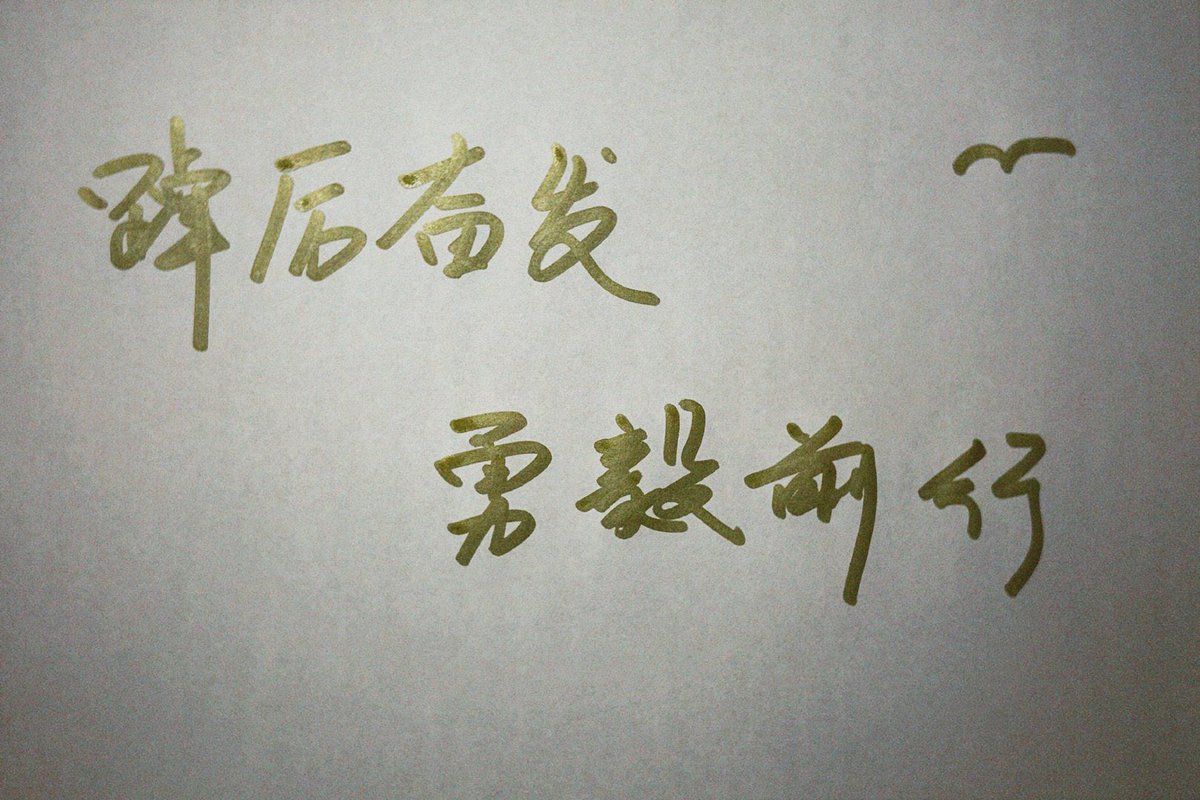 踔厉奋发
勇毅前行